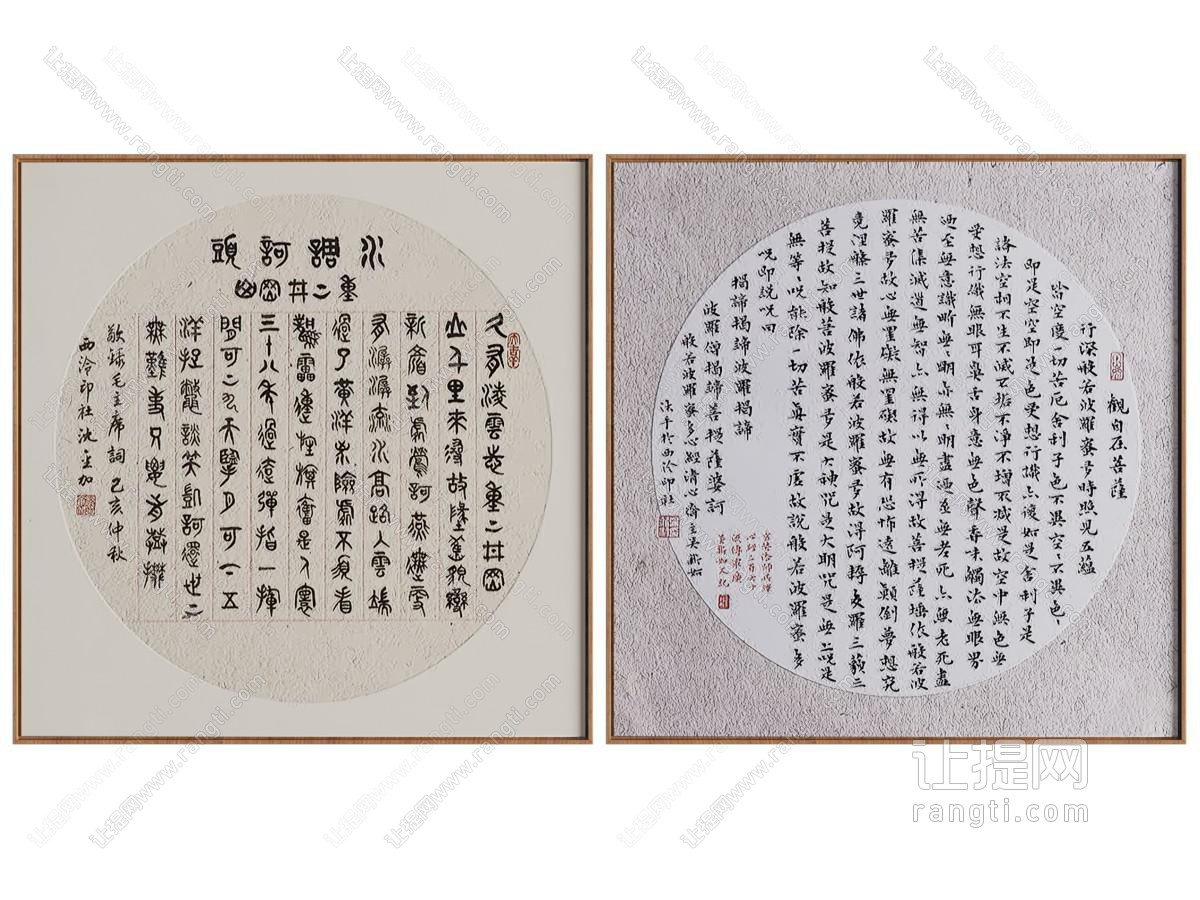 水調訶頭
重上井岡山
久有凌雲志重上井岡
山千里來尋故墬舊貌變
新顏到處鶯訶燕舞更
有潺潺流水高路入雲端
過了黃洋界險處不須看
風雷動旌旗奮是人寰
三十八年過去彈指一揮
間可上九天攬月可下五
洋捉鱉談笑凱訶還世上
無難事只要肯登攀
敬録毛主席詞己亥仲秋
西泠印社沈
觀自在菩薩
行深般若波羅蜜多時照見五蘊
皆空度一切苦厄舍利子色不異空空不異色
即是空空即是色受想行識亦復如是舍利子是
諸法空相不生不滅不垢不淨不增不減是故空中無色無
受想行識無眼耳鼻舌身意無色聲香味觸法無眼界
乃至無意識界無無明亦無無明盡乃至無老死亦無老死盡
無苦集滅道無智亦無得以無所得故菩提薩埵依般若波
羅蜜多故心無罣礙無罣礙故無有恐怖遠離顛倒夢想究
竟涅槃三世諸佛依般若波羅蜜多故得阿耨多羅三藐三
菩提故知般若波羅蜜多是大神咒是大明咒是無上咒是
無等等咒能除一切苦真實不虛故說般若波羅蜜多
咒即說咒曰
揭諦揭諦波羅揭諦
波羅僧揭諦菩提薩婆訶
般若波羅蜜多心經清心齋主吳
於西泠印社
让提网
rangti.com
让提网www.rangti.com